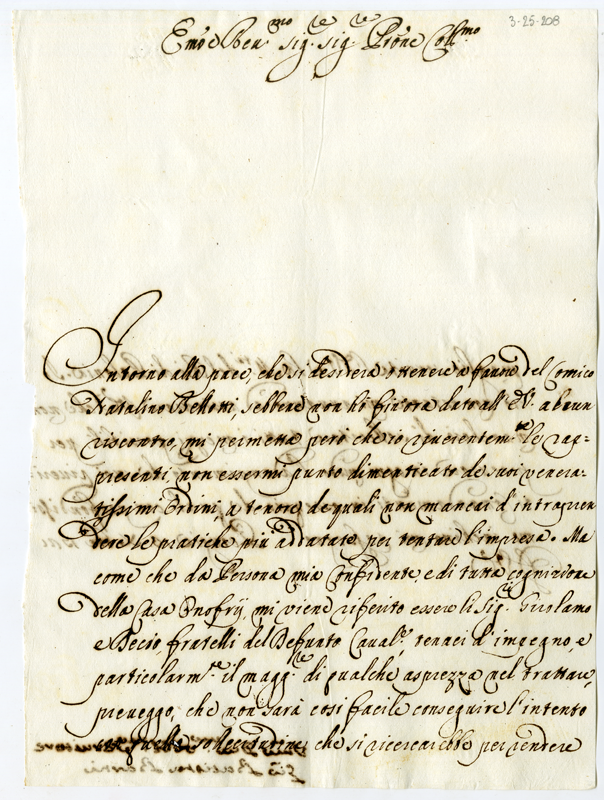 3-25-208
Em.o e Rev.mo Sig.re Sig.re Prone Coll.mo
Intorno alla pace, che si desidera ottenere a favore del Comico
Natalino Bellotti, sebbene non hò fin'ora dato all'E.V. alcun
riscontro, mi permetta però che io riverentem.te le rap=
presenti, non essermi punto dimenticato de suoi venera=
tissimi Ordini, a tenore de quali non mancai d'intrapren
dere le pratiche più addatate per tentare l'impresa. Ma
come che da Persona mia Confidente, e di tutta cognizione
della Casa Onofrij, mi viene riferito essere li Sig.ri Girolamo
e Decio fratelli del Defunto Caval.re, tenaci d'impegno, e
particolarm.te il magg.re di qualche asprezza nel trattare,
preveggo, che non sarà così facile conseguire l'intento
con quella sollecitudine, che si ricercarebbe per rendere